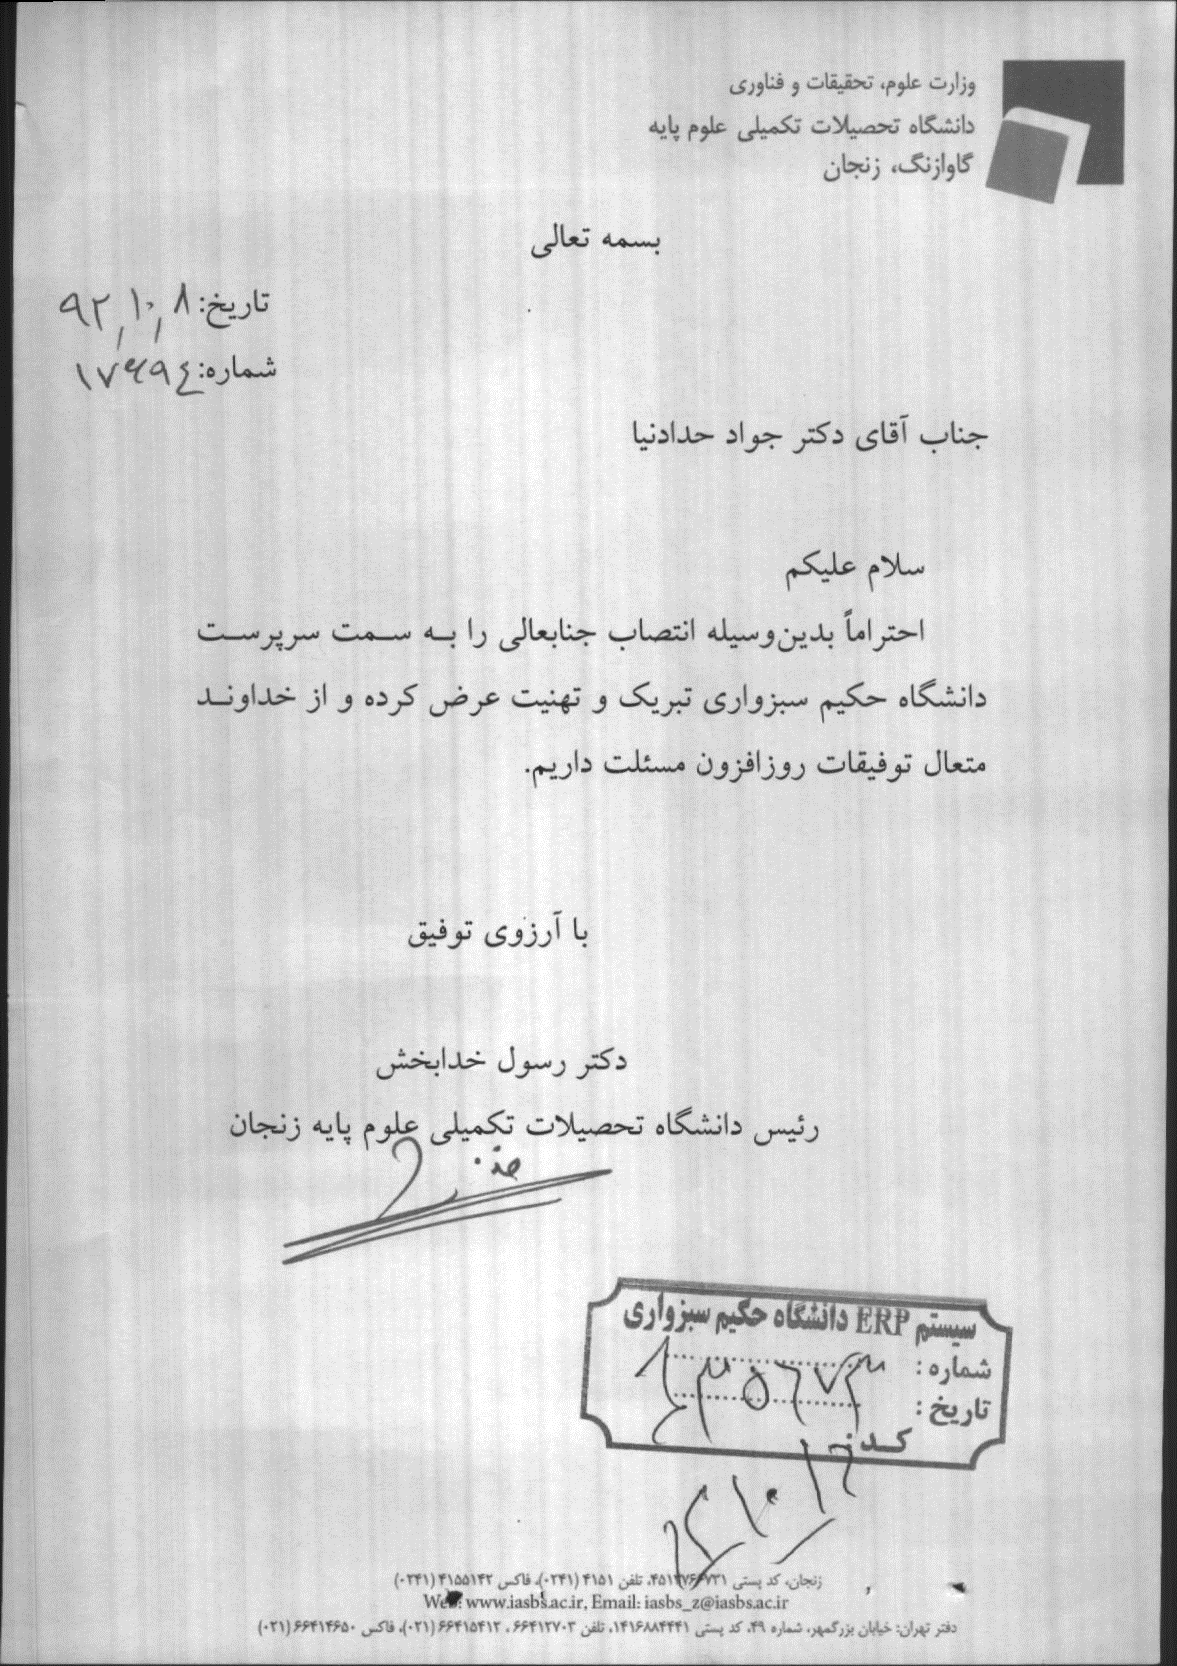 وزارت علوم، تحقیقات و فناوری
دانشگاه تحصیلات تکمیلی علوم پایه
گاوازنگ، زنجان
بسمه تعالی
تاریخ: ۹۲٫۱۰٫۸
شماره: ۱۷۶۹٤
جناب آقای دکتر جواد حدادنیا
سلام علیکم
احتراماً بدین‌وسیله انتصاب جنابعالی را به سمت سرپرست
دانشگاه حکیم سبزواری تبریک و تهنیت عرض کرده و از خداوند
متعال توفیقات روزافزون مسئلت داریم.
با آرزوی توفیق
دکتر رسول خدابخش
رئیس دانشگاه تحصیلات تکمیلی علوم پایه زنجان
سیستم ERP دانشگاه حکیم سبزواری
شماره :
تاریخ :
کد :
زنجان، کد پستی ۴۵۱۳۷۶۶۷۳۱، تلفن ۴۱۵۱ (۰۲۴۱)، فاکس ۴۱۵۵۱۴۲ (۰۲۴۱)
Web: www.iasbs.ac.ir, Email: iasbs_z@iasbs.ac.ir
دفتر تهران: خیابان بزرگمهر، شماره ۴۹، کد پستی ۱۴۱۶۸۸۴۴۴۱، تلفن ۶۶۴۱۲۷۰۳ ، ۶۶۴۱۵۴۱۲ (۰۲۱)، فاکس ۶۶۴۱۴۶۵۰ (۰۲۱)